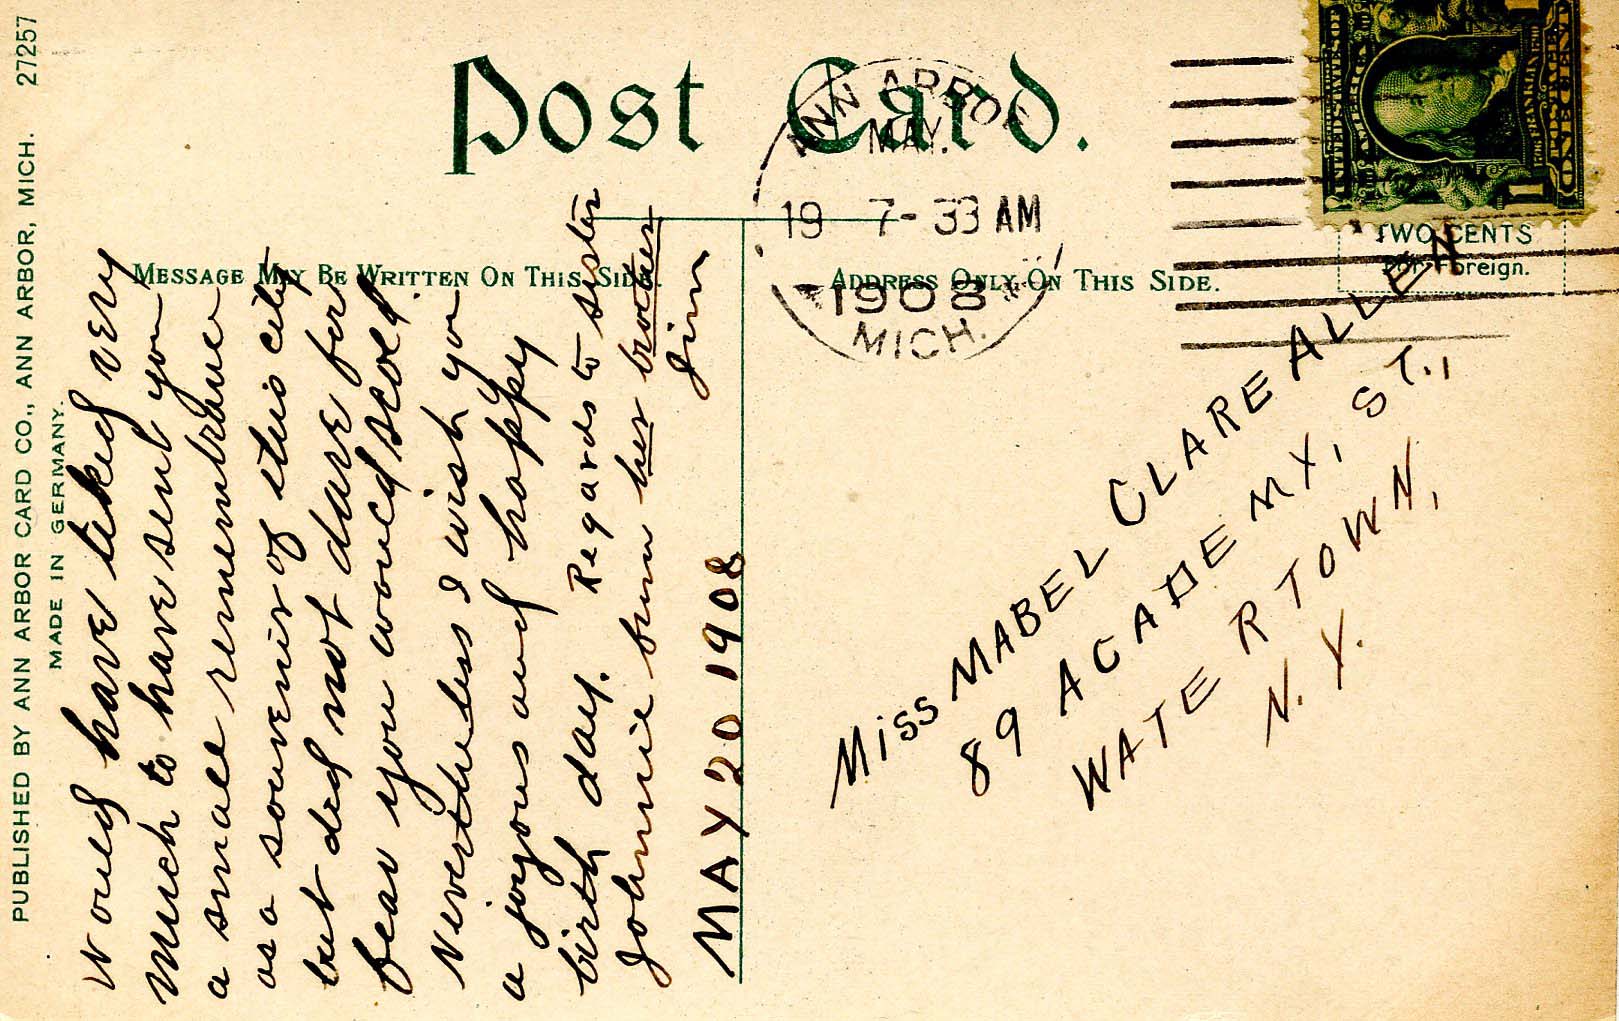 Post Card.
PUBLISHED BY ANN ARBOR CARD CO., ANN ARBOR, MICH. 27257
MADE IN GERMANY.
MESSAGE MAY BE WRITTEN ON THIS SIDE.
ADDRESS ONLY ON THIS SIDE.
ANN ARBOR
MAY.
19 7-33 AM
1908
MICH.
UNITED STATES OF AMERICA
FRANKLIN
POSTAGE
ONE CENT
1
TWO CENTS
For Foreign.
Would have liked very
much to have sent you
a small remembrance
as a souvenir of this city
but did not dare for
fear you would scold.
Nevertheless I wish you
a joyous and happy
birth day. Regards to sister
Johnnie from her brother
Jim
MAY 20 1908
MISS MABEL CLARE ALLEN
89 ACADEMY, ST.,
WATERTOWN,
N. Y.